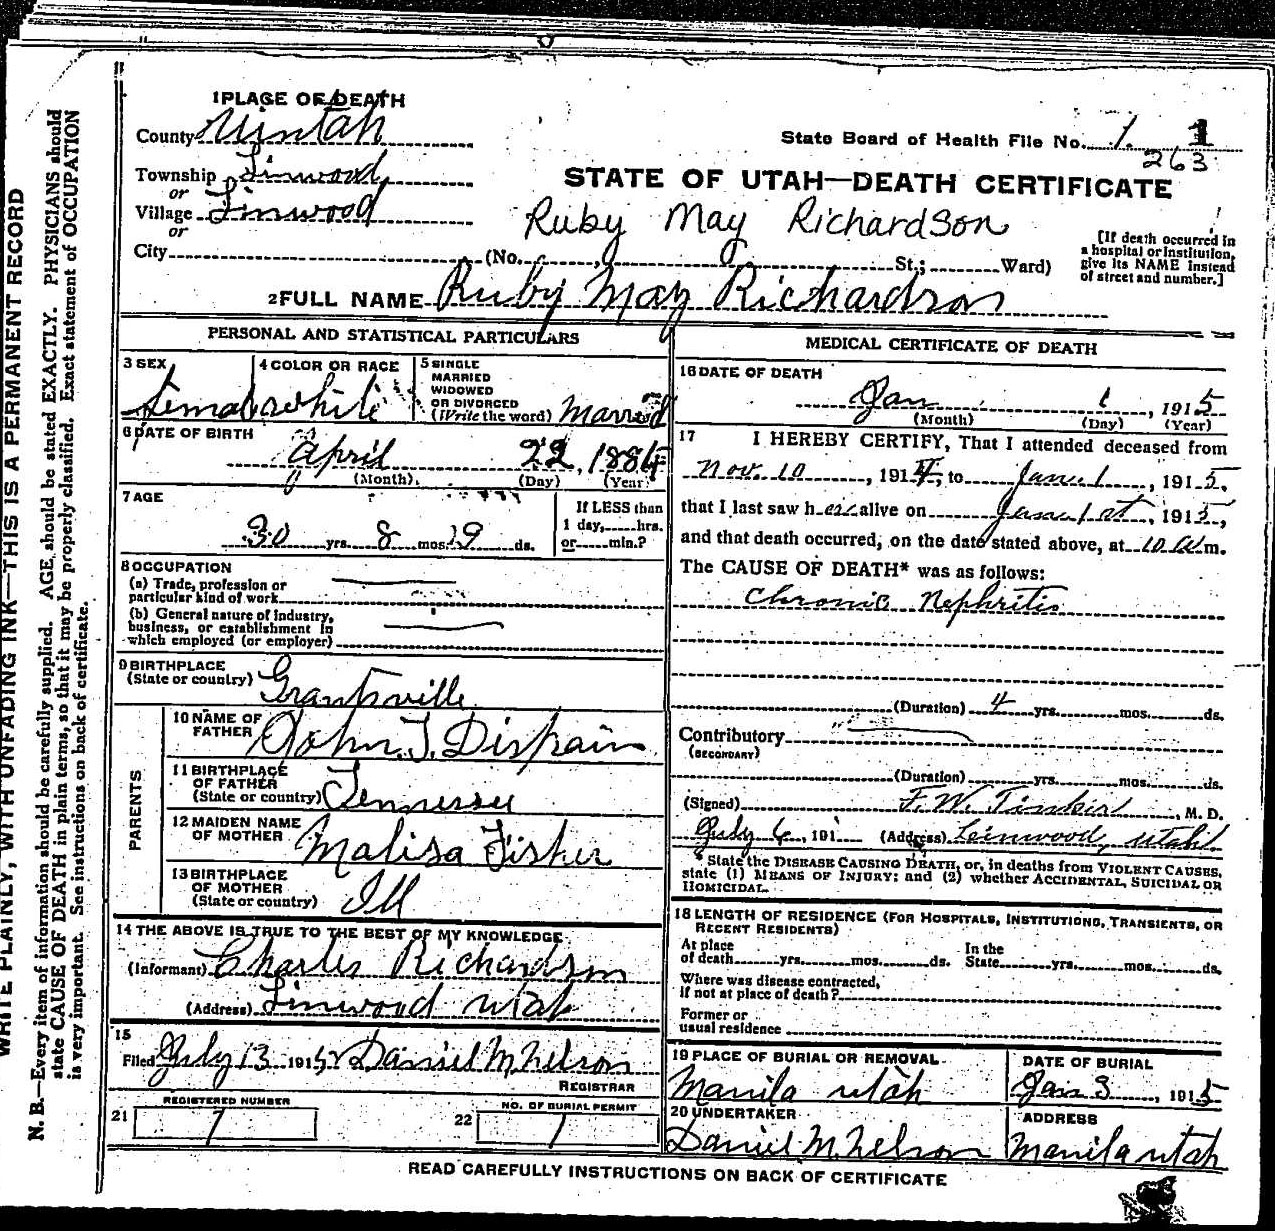 1 PLACE OF DEATH
County Uintah
State Board of Health File No. 1 1
263
Township Linwood
or
Village Linwood
or
STATE OF UTAH—DEATH CERTIFICATE
Ruby May Richardson
City (No. St.; Ward)
[If death occurred in
a hospital or institution,
give its NAME instead
of street and number.]
2 FULL NAME Ruby May Richardson
PERSONAL AND STATISTICAL PARTICULARS
3 SEX
Female
4 COLOR OR RACE
White
5 SINGLE
MARRIED
WIDOWED
OR DIVORCED
(Write the word) Married
6 DATE OF BIRTH
April 22, 1884
(Month) (Day) (Year)
7 AGE
30 yrs. 8 mos. 9 ds.
If LESS than
1 day, hrs.
or min.?
8 OCCUPATION
(a) Trade, profession or
particular kind of work
(b) General nature of industry,
business, or establishment in
which employed (or employer)
9 BIRTHPLACE
(State or country) Grantsville
PARENTS
10 NAME OF
FATHER John J. Dispain
11 BIRTHPLACE
OF FATHER
(State or country) Tennessee
12 MAIDEN NAME
OF MOTHER Malisa Fisher
13 BIRTHPLACE
OF MOTHER
(State or country) Ill
14 THE ABOVE IS TRUE TO THE BEST OF MY KNOWLEDGE
(Informant) Charles Richardson
(Address) Linwood Utah
15
Filed July 13 1915 Daniel M. Nelson
REGISTRAR
21 REGISTERED NUMBER
1
22 NO. OF BURIAL PERMIT
1
MEDICAL CERTIFICATE OF DEATH
16 DATE OF DEATH
Jan 1, 1915
(Month) (Day) (Year)
17 I HEREBY CERTIFY, That I attended deceased from
Nov. 10, 1914, to Jan. 1, 1915,
that I last saw her alive on Jan 1st, 1915,
and that death occurred, on the date stated above, at 10 a m.
The CAUSE OF DEATH* was as follows:
Chronic Nephritis
(Duration) 4 yrs. mos. ds.
Contributory
(SECONDARY)
(Duration) yrs. mos. ds.
(Signed) F. W. Tinker, M. D.
July 6, 191 (Address) Linwood, Utah
* State the DISEASE CAUSING DEATH, or, in deaths from VIOLENT CAUSES,
state (1) MEANS OF INJURY; and (2) whether ACCIDENTAL, SUICIDAL OR
HOMICIDAL.
18 LENGTH OF RESIDENCE (FOR HOSPITALS, INSTITUTIONS, TRANSIENTS, OR
RECENT RESIDENTS)
At place
of death yrs. mos. ds.
In the
State yrs. mos. ds.
Where was disease contracted,
if not at place of death?
Former or
usual residence
19 PLACE OF BURIAL OR REMOVAL
Manila Utah
DATE OF BURIAL
Jan 3, 1915
20 UNDERTAKER
Daniel M. Nelson
ADDRESS
Manila Utah
READ CAREFULLY INSTRUCTIONS ON BACK OF CERTIFICATE
WRITE PLAINLY, WITH UNFADING INK—THIS IS A PERMANENT RECORD
N. B.—Every item of information should be carefully supplied. AGE should be stated EXACTLY. PHYSICIANS should
state CAUSE OF DEATH in plain terms, so that it may be properly classified. Exact statement of OCCUPATION
is very important. See instructions on back of certificate.